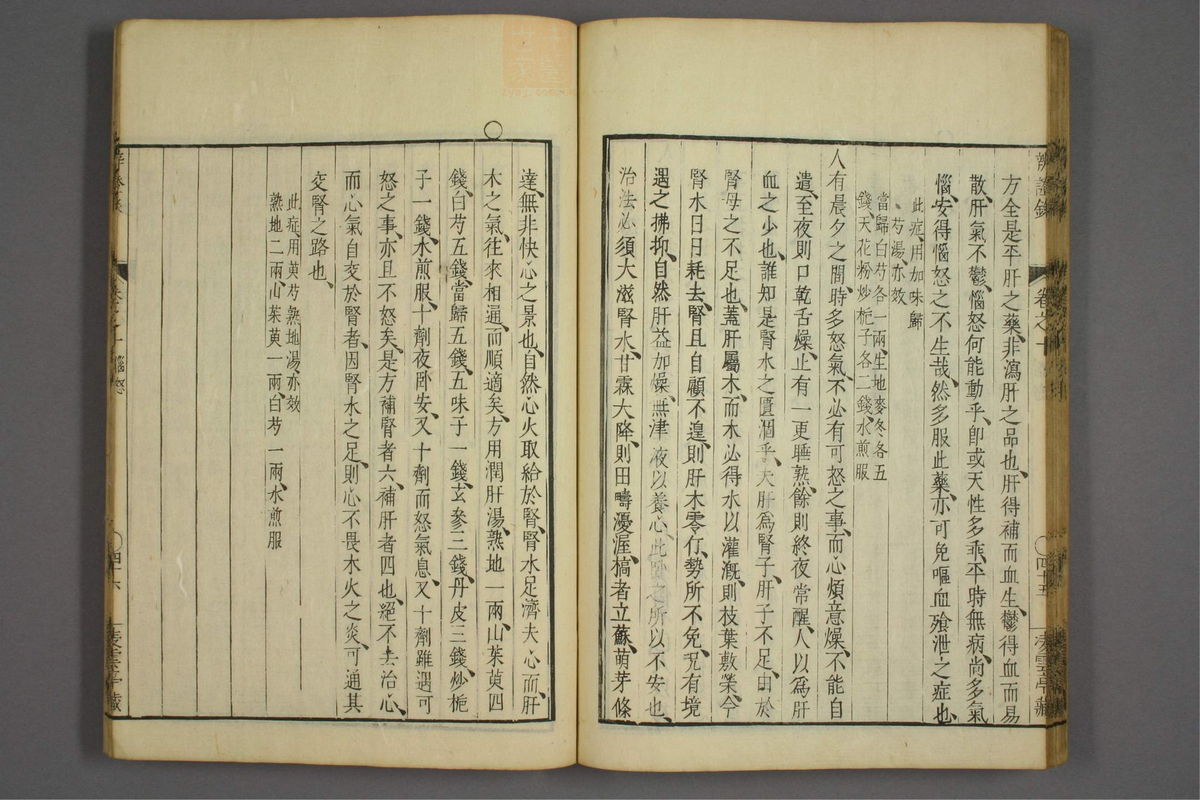 辨證錄
卷之十
四十五
凌雲亭藏
方全是平肝之藥、非瀉肝之品也、肝得補而血生、鬱得血而易
散、肝氣不鬱、惱怒何能動乎、卽或天性多乖、平時無病、尚多氣
惱、安得惱怒之不生哉、然多服此藥、亦可免嘔血飱泄之症也、
此症、用加味歸
芍湯亦效、
當歸白芍各一兩、生地麥冬各五
錢、天花粉炒梔子各二錢、水煎服
人有晨夕之間、時多怒氣、不必有可怒之事、而心煩意燥、不能自
遣、至夜則口乾舌燥、止有一更睡熟、餘則終夜常醒、人以爲肝
血之少也、誰知是腎水之匱涸乎、夫肝爲腎子、肝子不足、由於
腎母之不足也、蓋肝屬木、而木必得水以灌漑、則枝葉敷榮、今
腎水日日耗去、腎且自顧不遑、則肝木零仃、勢所不免、況有境
遇之拂抑、自然肝益加燥、無津液以養心、此卧之所以不安也、
治法必須大滋腎水、甘霖大降、則田疇優渥、槁者立蘇、萌芽條
達、無非快心之景也、自然心火取給於腎、腎水足濟夫心、而肝
木之氣、往來相通而順適矣、方用潤肝湯、熟地一兩、山茱萸四
錢、白芍五錢、當歸五錢、五味子一錢、玄參三錢、丹皮三錢、炒梔
子一錢、水煎服、十劑夜卧安、又十劑而怒氣息、又十劑雖遇可
怒之事、亦且不怒矣、是方補腎者六、補肝者四也、絕不去治心、
而心氣自交於腎者、因腎水之足、則心不畏木火之炎、可通其
交腎之路也、
此症、用萸芍熟地湯亦效
熟地二兩、山茱萸一兩、白芍一兩、水煎服
惱怒
四十六